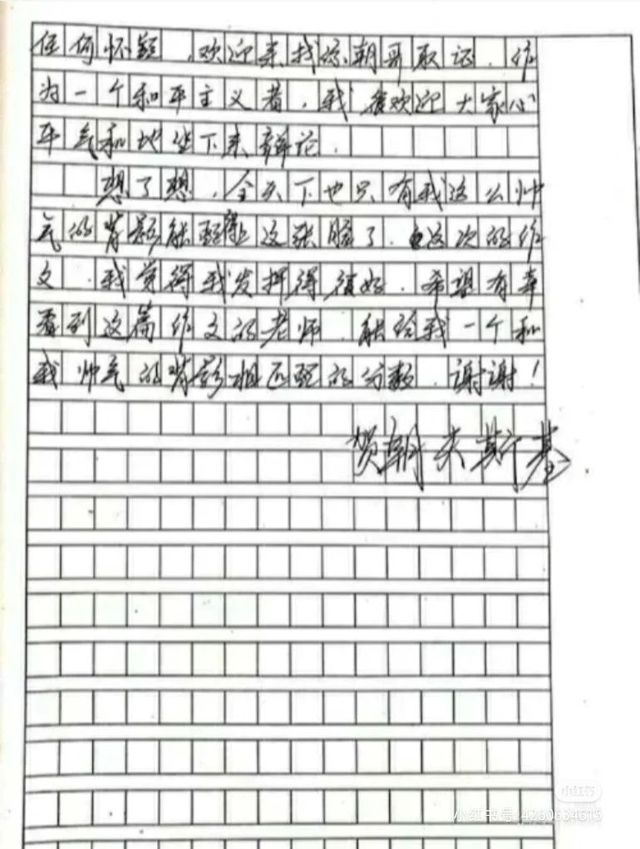 任何怀疑，欢迎来找你朝哥取证，作
为一个和平主义者，我随欢迎大家心
平气和地坐下来辩论．
想了想，全天下也只有我这么帅
气的背影能配得上这张脸了．这次的作
文．我觉得我发挥得很好．希望有幸
看到这篇作文的老师．能给我一个和
我帅气的背影相匹配的分数．谢谢！
贺朝夫斯基
小红书
小红书号：4260634615